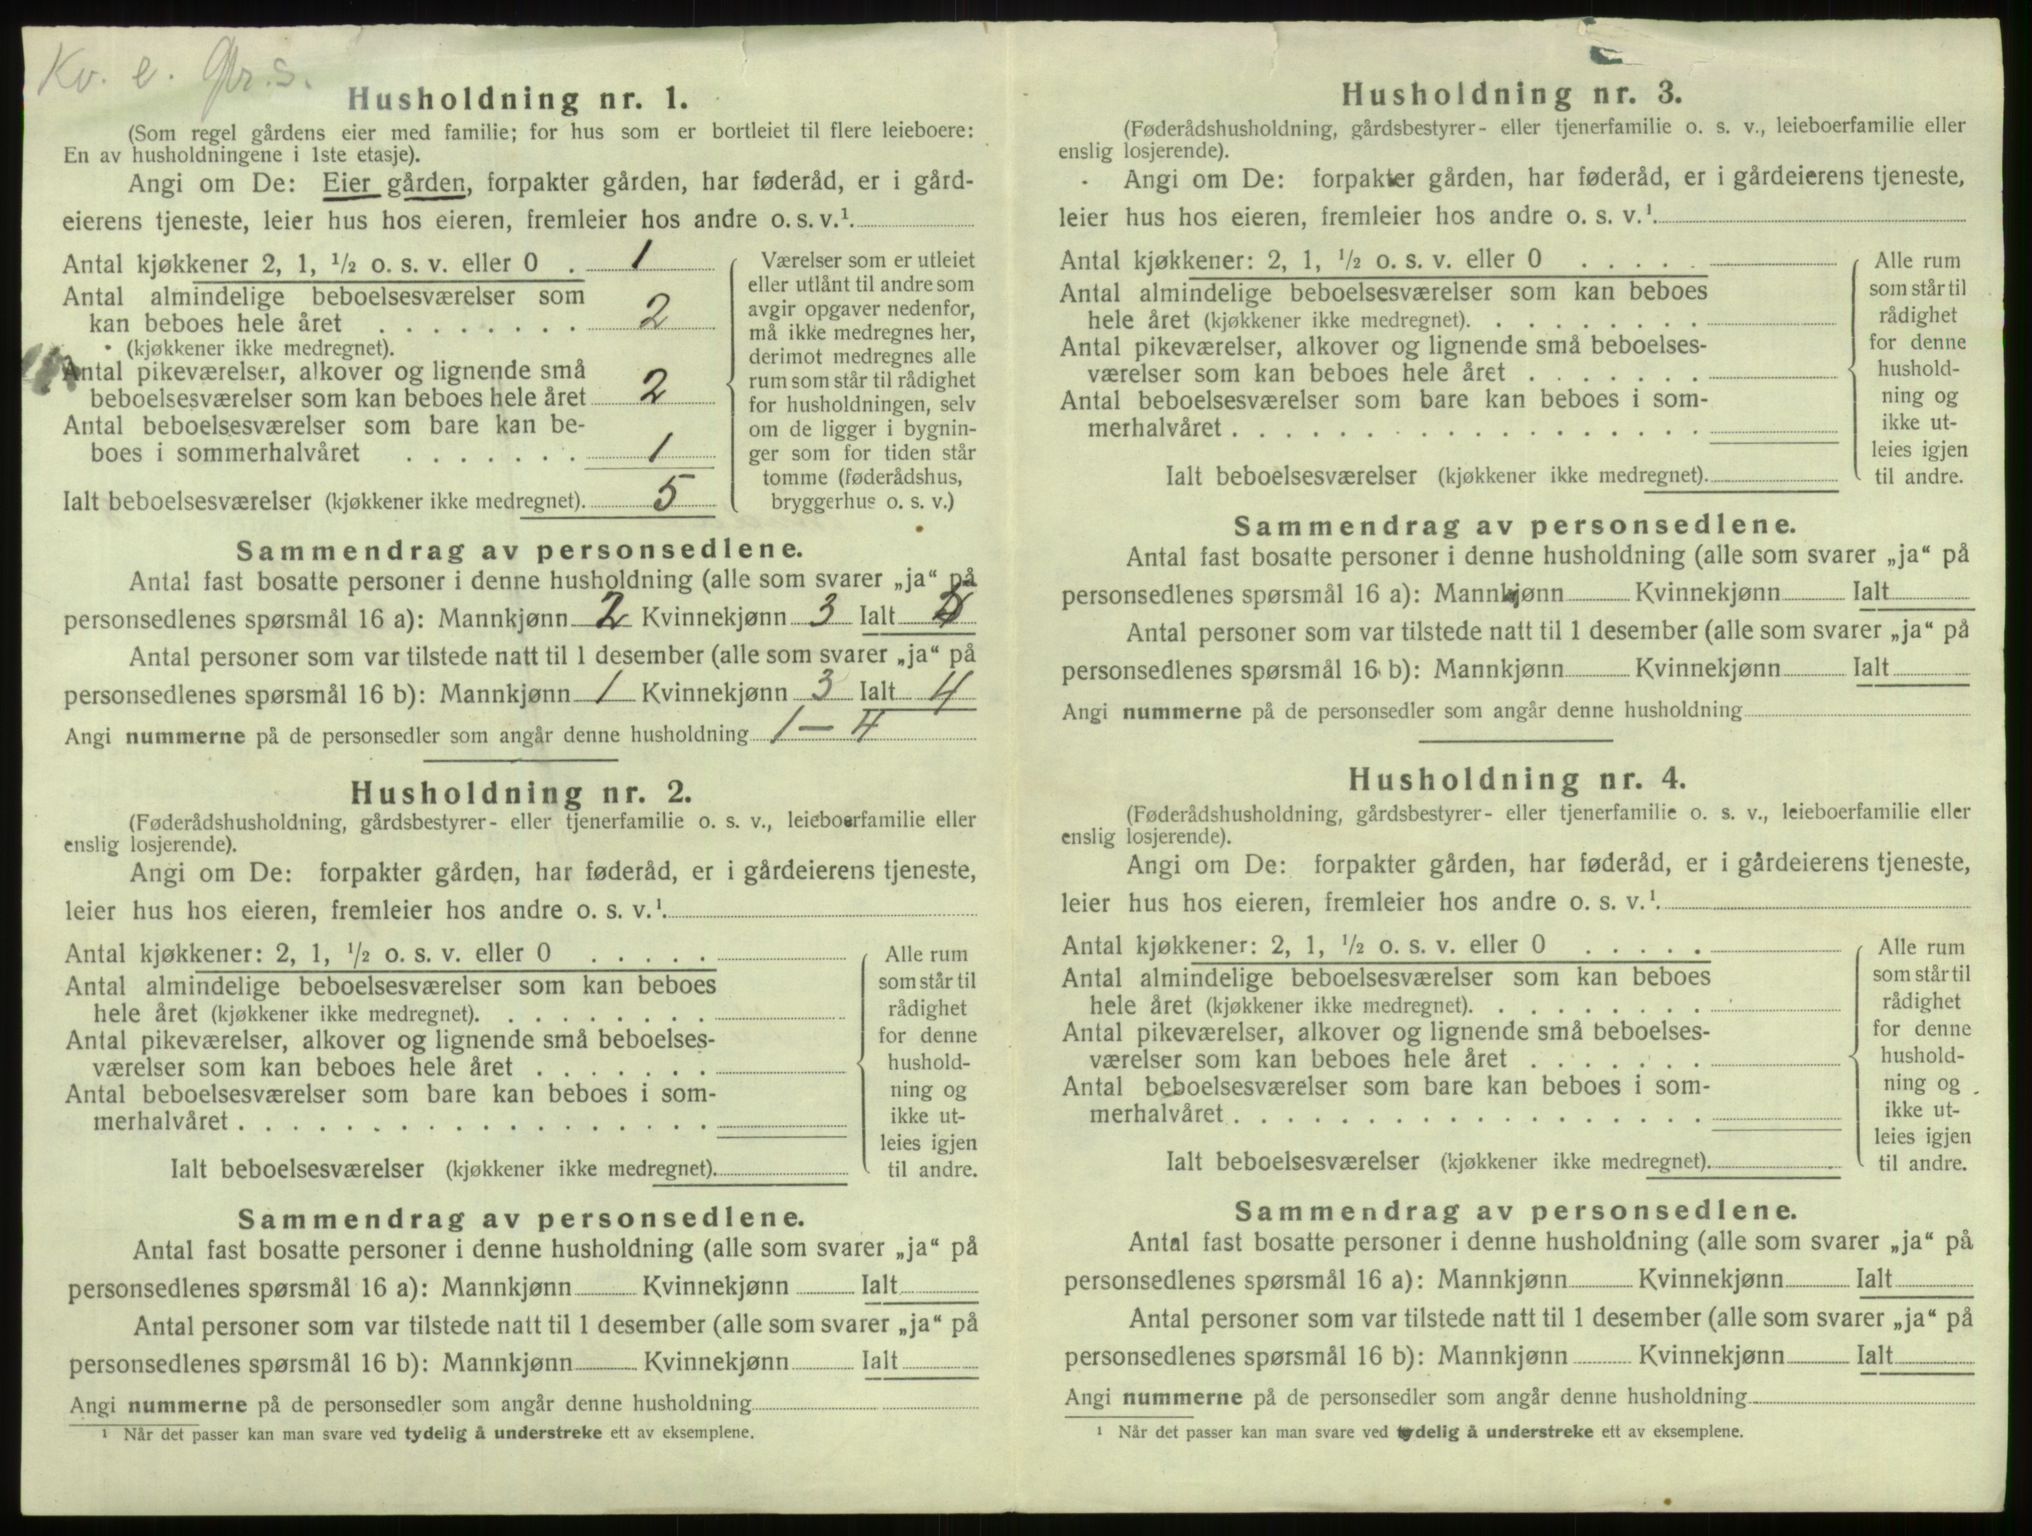 Kv. e. Gr. s.
Husholdning nr. 1.
(Som regel gårdens eier med familie; for hus som er bortleiet til flere leieboere:
En av husholdningene i 1ste etasje).
Angi om De: Eier gården, forpakter gården, har føderåd, er i gård-
eierens tjeneste, leier hus hos eieren, fremleier hos andre o. s. v.¹
Antal kjøkkener 2, 1, ½ o. s. v. eller 0 . 1
Antal almindelige beboelsesværelser som
kan beboes hele året . . . . . . . . 2
(kjøkkener ikke medregnet).
Antal pikeværelser, alkover og lignende små
beboelsesværelser som kan beboes hele året 2
Antal beboelsesværelser som bare kan be-
boes i sommerhalvåret . . . . . . . 1
Ialt beboelsesværelser (kjøkkener ikke medregnet). 5
Værelser som er utleiet
eller utlånt til andre som
avgir opgaver nedenfor,
må ikke medregnes her,
derimot medregnes alle
rum som står til rådighet
for husholdningen, selv
om de ligger i bygnin-
ger som for tiden står
tomme (føderådshus,
bryggerhus o. s. v.)
Sammendrag av personsedlene.
Antal fast bosatte personer i denne husholdning (alle som svarer „ja“ på
personsedlenes spørsmål 16 a): Mannkjønn 2 Kvinnekjønn 3 Ialt 5
Antal personer som var tilstede natt til 1 desember (alle som svarer „ja“ på
personsedlenes spørsmål 16 b): Mannkjønn 1 Kvinnekjønn 3 Ialt 4
Angi nummerne på de personsedler som angår denne husholdning 1 — 4
Husholdning nr. 2.
(Føderådshusholdning, gårdsbestyrer- eller tjenerfamilie o. s. v., leieboerfamilie eller
enslig losjerende).
Angi om De: forpakter gården, har føderåd, er i gårdeierens tjeneste,
leier hus hos eieren, fremleier hos andre o. s. v.¹
Antal kjøkkener: 2, 1, ½ o. s. v. eller 0 . . . . .
Antal almindelige beboelsesværelser som kan beboes
hele året (kjøkkener ikke medregnet). . . . . . . . .
Antal pikeværelser, alkover og lignende små beboelses-
værelser som kan beboes hele året . . . . . . .
Antal beboelsesværelser som bare kan beboes i som-
merhalvåret . . . . . . . . . . . . . . . . . .
Ialt beboelsesværelser (kjøkkener ikke medregnet).
Alle rum
som står til
rådighet
for denne
hushold-
ning og
ikke ut-
leies igjen
til andre.
Sammendrag av personsedlene.
Antal fast bosatte personer i denne husholdning (alle som svarer „ja“ på
personsedlenes spørsmål 16 a): Mannkjønn Kvinnekjønn Ialt
Antal personer som var tilstede natt til 1 desember (alle som svarer „ja“ på
personsedlenes spørsmål 16 b): Mannkjønn Kvinnekjønn Ialt
Angi nummerne på de personsedler som angår denne husholdning
¹ Når det passer kan man svare ved tydelig å understreke ett av eksemplene.
Husholdning nr. 3.
(Føderådshusholdning, gårdsbestyrer- eller tjenerfamilie o. s. v., leieboerfamilie eller
enslig losjerende).
Angi om De: forpakter gården, har føderåd, er i gårdeierens tjeneste,
leier hus hos eieren, fremleier hos andre o. s. v.¹
Antal kjøkkener: 2, 1, ½ o. s. v. eller 0 . . . . .
Antal almindelige beboelsesværelser som kan beboes
hele året (kjøkkener ikke medregnet). . . . . . . . .
Antal pikeværelser, alkover og lignende små beboelses-
værelser som kan beboes hele året . . . . . . .
Antal beboelsesværelser som bare kan beboes i som-
merhalvåret . . . . . . . . . . . . . . . . . .
Ialt beboelsesværelser (kjøkkener ikke medregnet).
Alle rum
som står til
rådighet
for denne
hushold-
ning og
ikke ut-
leies igjen
til andre.
Sammendrag av personsedlene.
Antal fast bosatte personer i denne husholdning (alle som svarer „ja“ på
personsedlenes spørsmål 16 a): Mannkjønn Kvinnekjønn Ialt
Antal personer som var tilstede natt til 1 desember (alle som svarer „ja“ på
personsedlenes spørsmål 16 b): Mannkjønn Kvinnekjønn Ialt
Angi nummerne på de personsedler som angår denne husholdning
Husholdning nr. 4.
(Føderådshusholdning, gårdsbestyrer- eller tjenerfamilie o. s. v., leieboerfamilie eller
enslig losjerende).
Angi om De: forpakter gården, har føderåd, er i gårdeierens tjeneste,
leier hus hos eieren, fremleier hos andre o. s. v.¹
Antal kjøkkener: 2, 1, ½ o. s. v. eller 0 . . . . .
Antal almindelige beboelsesværelser som kan beboes
hele året (kjøkkener ikke medregnet). . . . . . . . .
Antal pikeværelser, alkover og lignende små beboelses-
værelser som kan beboes hele året . . . . . . .
Antal beboelsesværelser som bare kan beboes i som-
merhalvåret . . . . . . . . . . . . . . . . . .
Ialt beboelsesværelser (kjøkkener ikke medregnet).
Alle rum
som står til
rådighet
for denne
hushold-
ning og
ikke ut-
leies igjen
til andre.
Sammendrag av personsedlene.
Antal fast bosatte personer i denne husholdning (alle som svarer „ja“ på
personsedlenes spørsmål 16 a): Mannkjønn Kvinnekjønn Ialt
Antal personer som var tilstede natt til 1 desember (alle som svarer „ja“ på
personsedlenes spørsmål 16 b): Mannkjønn Kvinnekjønn Ialt
Angi nummerne på de personsedler som angår denne husholdning
¹ Når det passer kan man svare ved tydelig å understreke ett av eksemplene.